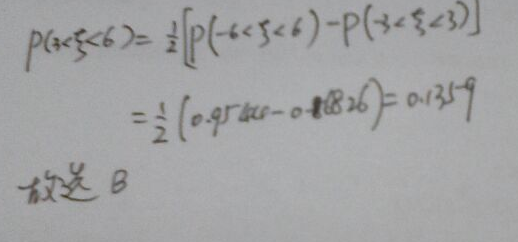 P(3<ξ<6)=½[P(-6<ξ<6)-P(-3<ξ<3)]
=½(0.9544-0.6826)=0.1359
故选 B